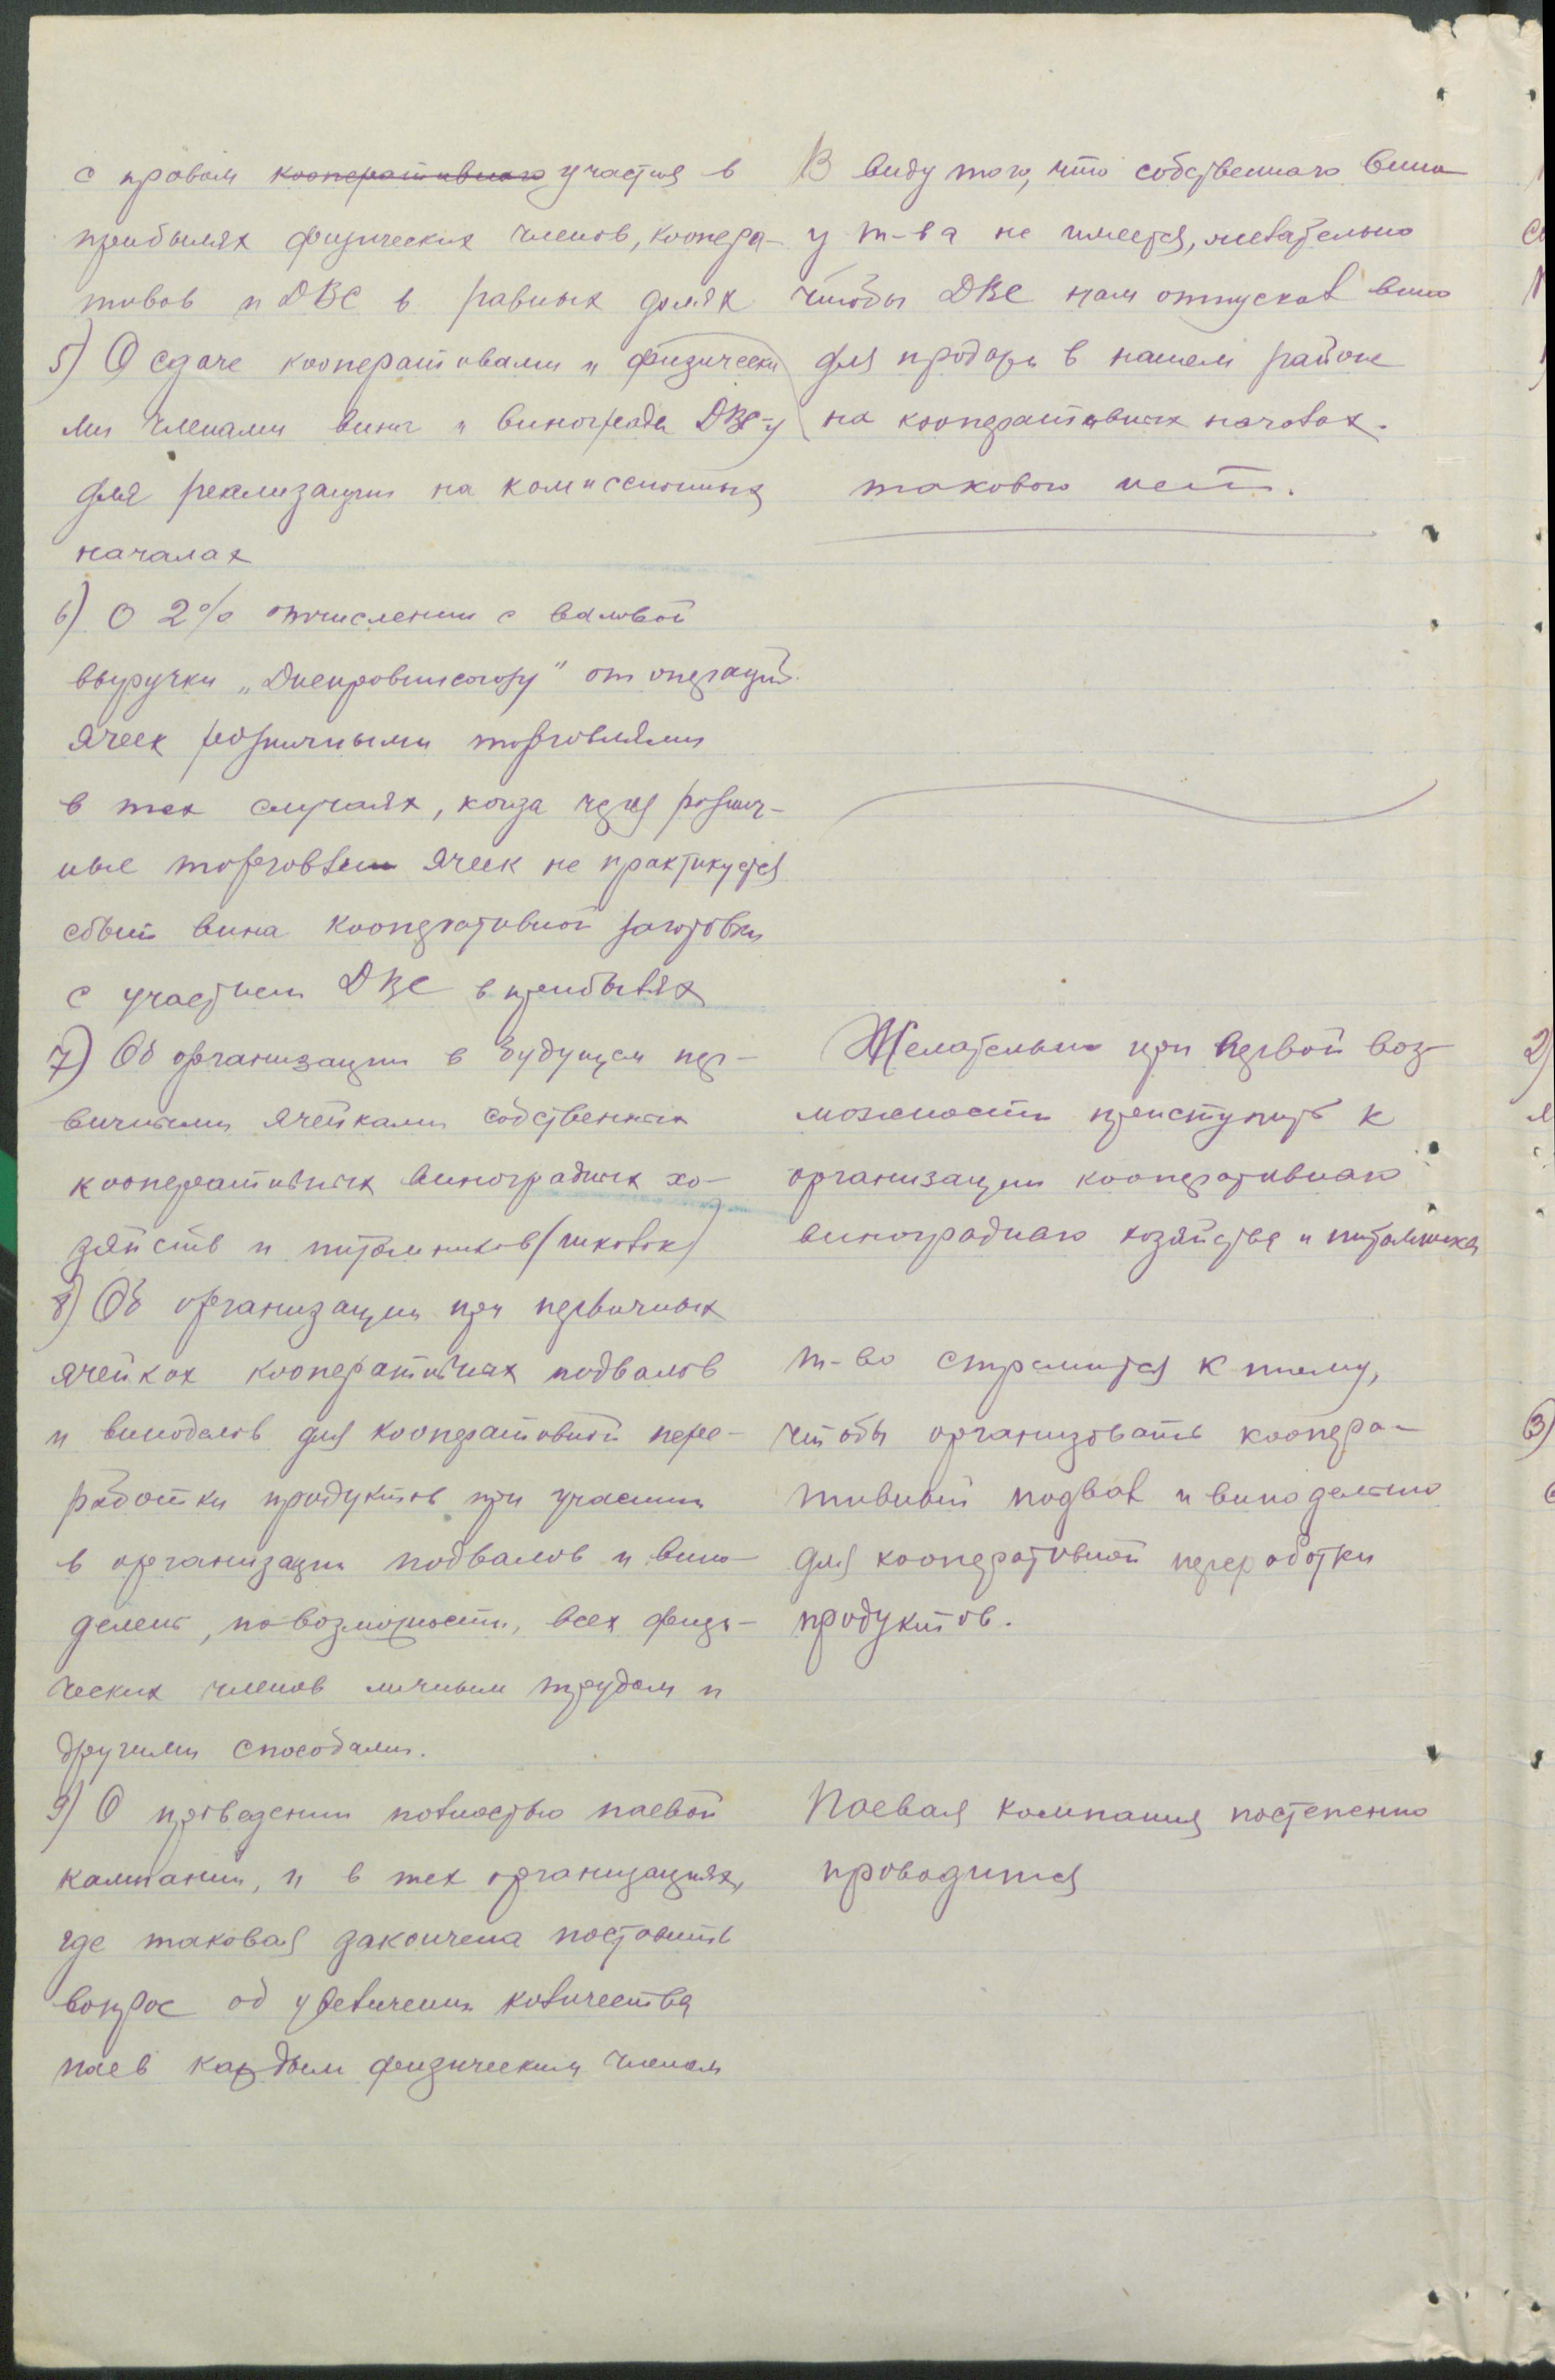 с правом кооперативного участия в
прибылях физических членов, коопера-
тивов и ДВС в равных долях
5) О сдаче кооперативами и физически
ми членами вина и винограда ДВС-у
для реализации на комиссионных
началах
6) О 2% отчислении с валовой
выручки „Днепровинсоюзу" от операций
ячеек розничными торговлями
в тех случаях, когда через рознич-
ные торговли ячеек не практикуется
сбыт вина кооперативной заготовки
с участием ДВС в прибылях
7) Об организации в будущем пер-
вичными ячейками собственных
кооперативных виноградных хо-
зяйств и питомников (школок)
8) Об организации при первичных
ячейках кооперативных подвалов
и виноделов для кооперативной пере-
работки продуктов при участии
в организации подвалов и вино-
делень, по возможности, всех физи-
ческих членов личным трудом и
другими способами.
9) О проведении полностью паевой
кампании, и в тех организациях,
где таковая закончена поставить
вопрос об увеличении количества
паев каждым физическим членом
В виду того, что собственного вина
у т-ва не имеется, желательно
чтобы ДВС нам отпускал вино
для продажи в нашем районе
на кооперативных началах.
такового нет.
Желательно при первой воз-
можности приступить к
организации кооперативного
виноградного хозяйства и питомника
т-во стремится к тому,
чтобы организовать коопера-
тивный подвал и виноделню
для кооперативной переработки
продуктов.
Паевая компания постепенно
проводится
2)
3)